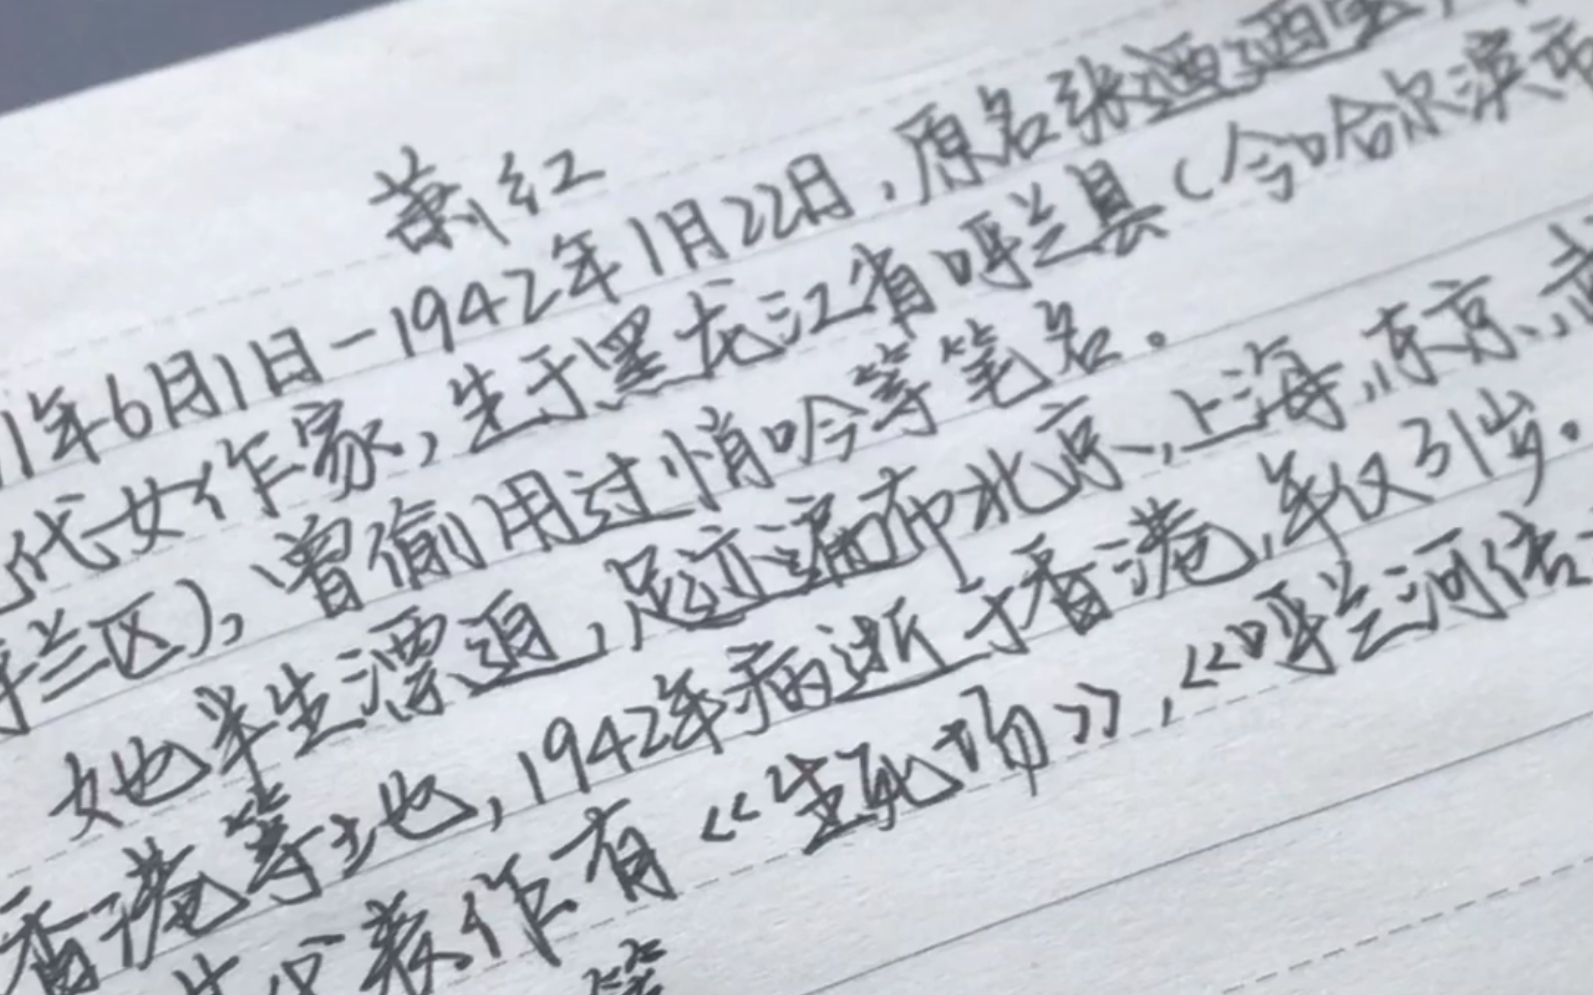 萧红
1年6月1日-1942年1月22日,原名张迺
代女作家,生于黑龙江省呼兰县(今哈尔滨市
兰区),曾偷用过悄吟等笔名。
她半生漂泊,足迹遍布北京、上海、东京、
香港等地,1942年病逝于香港,年仅31岁。
代表作有《生死场》,《呼兰河传
等